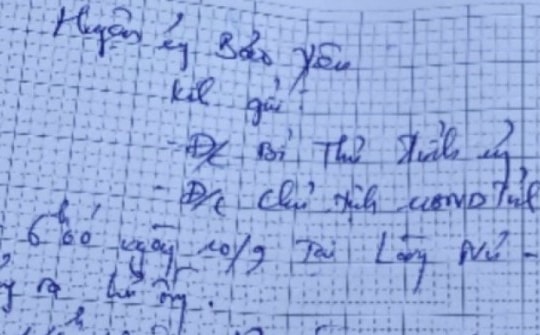 Huyện ủy Bảo Yên
Kính gửi:
- Đ/c Bí Thư Tỉnh ủy
- Đ/c Chủ tịch UBND Tỉnh
6h00 ngày 10/9 Tại Làng Nủ -
ra lũ ống.